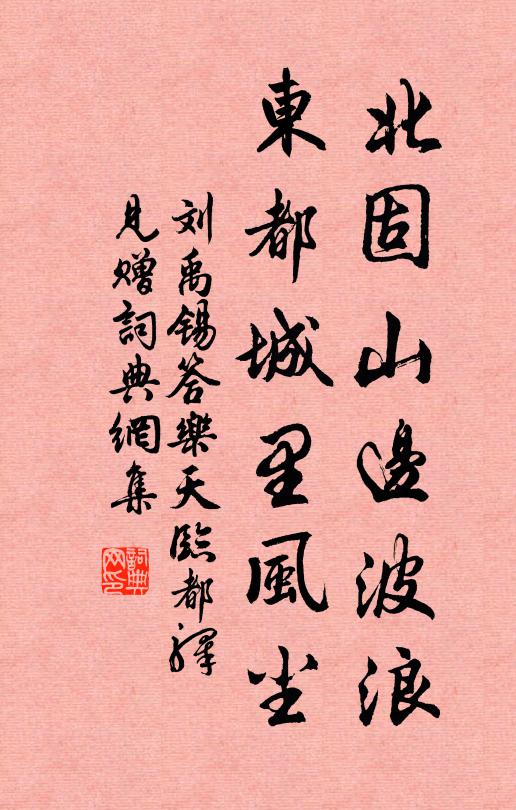 北固山邊波浪
東都城里風尘
刘禹錫答樂天臨都驛
見贈詞典網集
詞典
网印